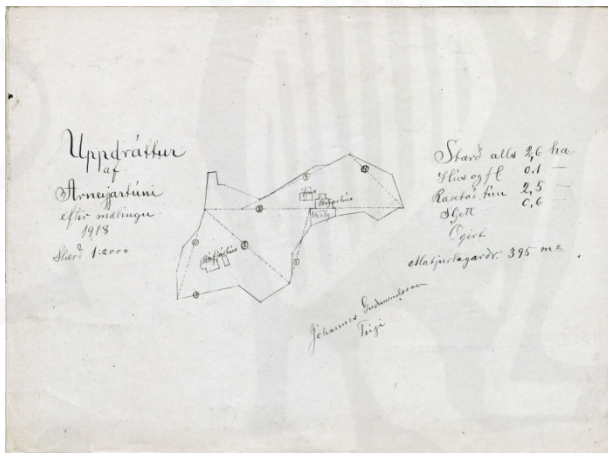 Uppdráttur
af
Árneyjartúni
eftir mælingu
1918
Stærð 1:2000
Stærð alls 2,6 ha
Hús og fl 0,1 —
Ræktað tún 2,5 —
Slett 0,6 —
Ógirt
Matjurtagarðr. 395 m²
Jóhannes Guðmundsson
Teigi